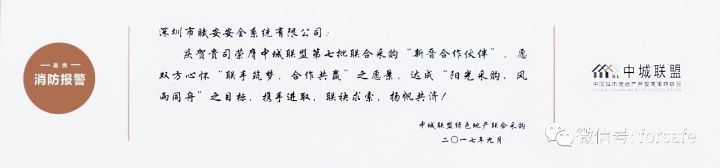 品类
消防报警
深圳市赋安安全系统有限公司：
庆贺贵司荣膺中城联盟第七批联合采购“新晋合作伙伴”，愿
双方心怀“联手筑梦，合作共赢”之愿景，达成“阳光采购、风
雨同舟”之目标，携手进取，联袂求索，扬帆共济！
中城联盟绿色地产联合采购
二〇一七年九月
中城联盟
中国城市房地产开发商策略联盟
CHINA URBAN REALTY ASSOCIATION
微信号: forsafe